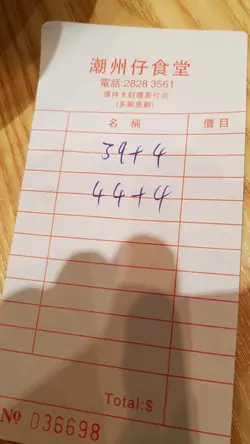 潮州仔食堂
電話:2828 3561
請持卡到櫃面付款
(多謝惠顧)
名稱 價目
39+4
44+4
Total:$
Nº 036698